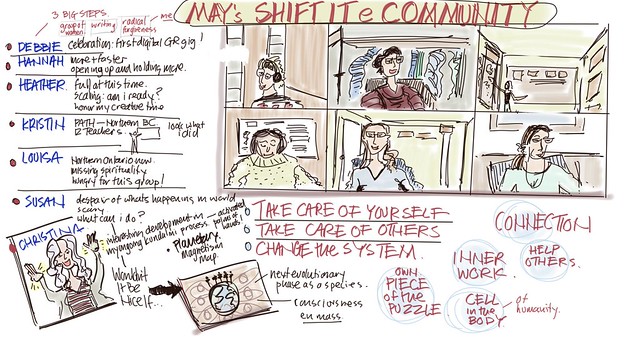 MAY'S SHIFT IT e COMMUNITY
3 BIG STEPS
group of women writing radical forgiveness me
DEBBIE celebration: first digital GR gig!
HANNAH more + faster
opening up and holding more.
HEATHER full at this time.
scaling: am i ready?
honor my creative time
KRISTIN PATH - Northern BC.
12 Teachers.
look what
i did
LOUISA Northern Ontario now.
missing spirituality
hungry for this group!
SUSAN despair of whats happening in world
scary
what can i do?
CHRISTINA
interesting development in
my ongoing kundalini process
activated
palms of
hands
Planetary
magnetism
map.
Wouldn't
it be
Nice if...
next evolutionary
phase as a species.
consciousness
en mass.
TAKE CARE OF YOURSELF
TAKE CARE OF OTHERS
CHANGE the SYSTEM.
CONNECTION
INNER
WORK.
HELP
OTHERS.
OWN
PIECE
of the
PUZZLE
CELL
in the
BODY
of
humanity.